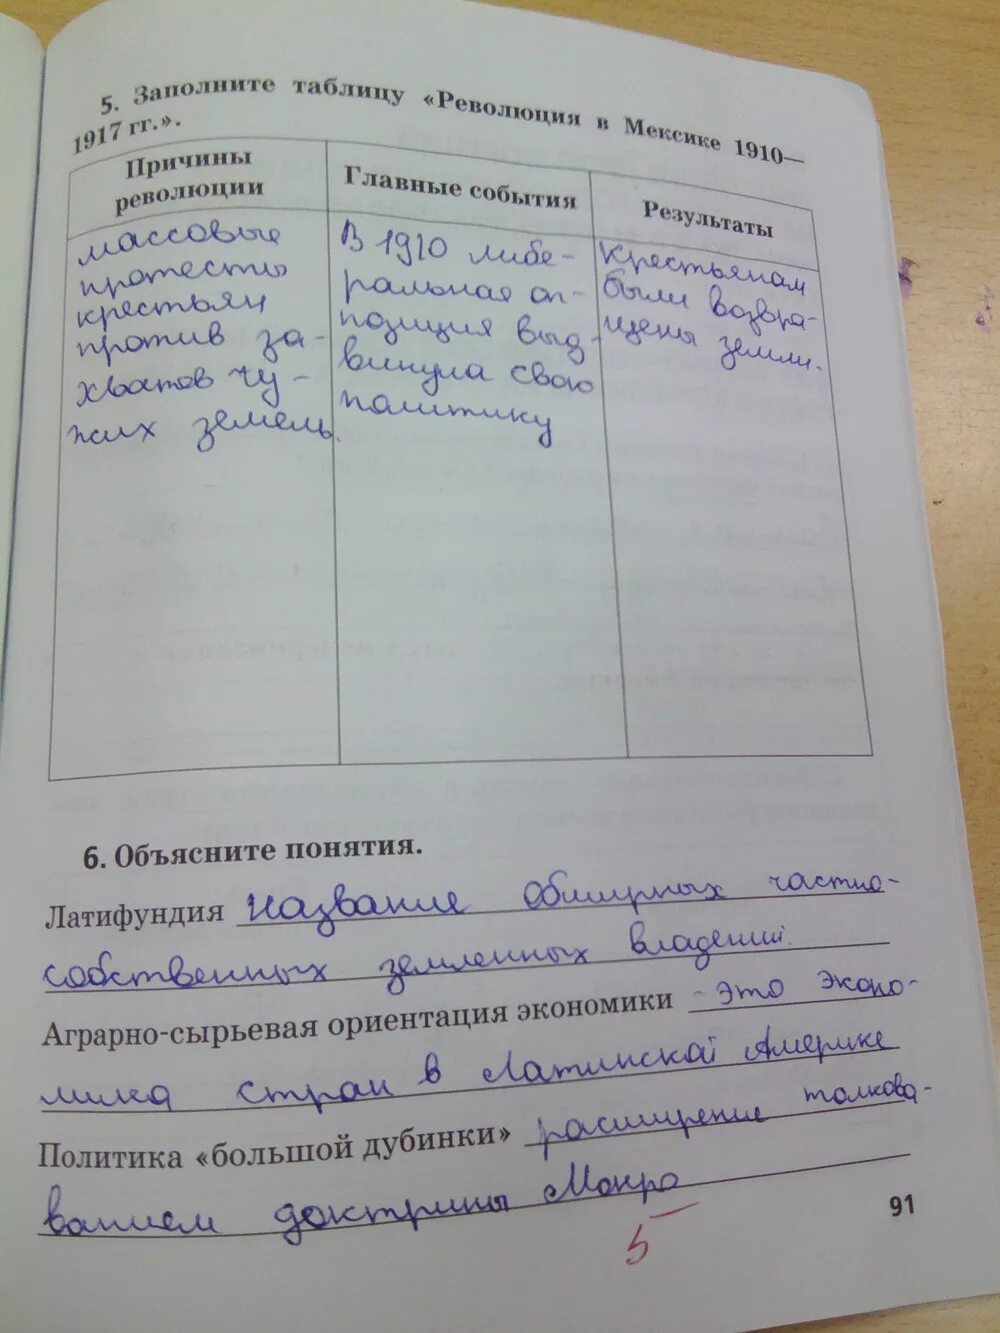 5. Заполните таблицу «Революция в Мексике 1910—
1917 гг.».
Причины
революции
массовые
протесты
крестьян
против за-
хватов чу-
жих земель
Главные события
В 1910 либе-
ральная оп-
позиция выд-
винула свою
политику
Результаты
Крестьянам
были возвра-
щены земли.
6. Объясните понятия.
Латифундия название обширных частно-
собственных земленных владений.
Аграрно-сырьевая ориентация экономики - это эконо-
мика стран в Латинской Америке
Политика «большой дубинки» расширение толкова-
ванием доктрины Монро
5
91